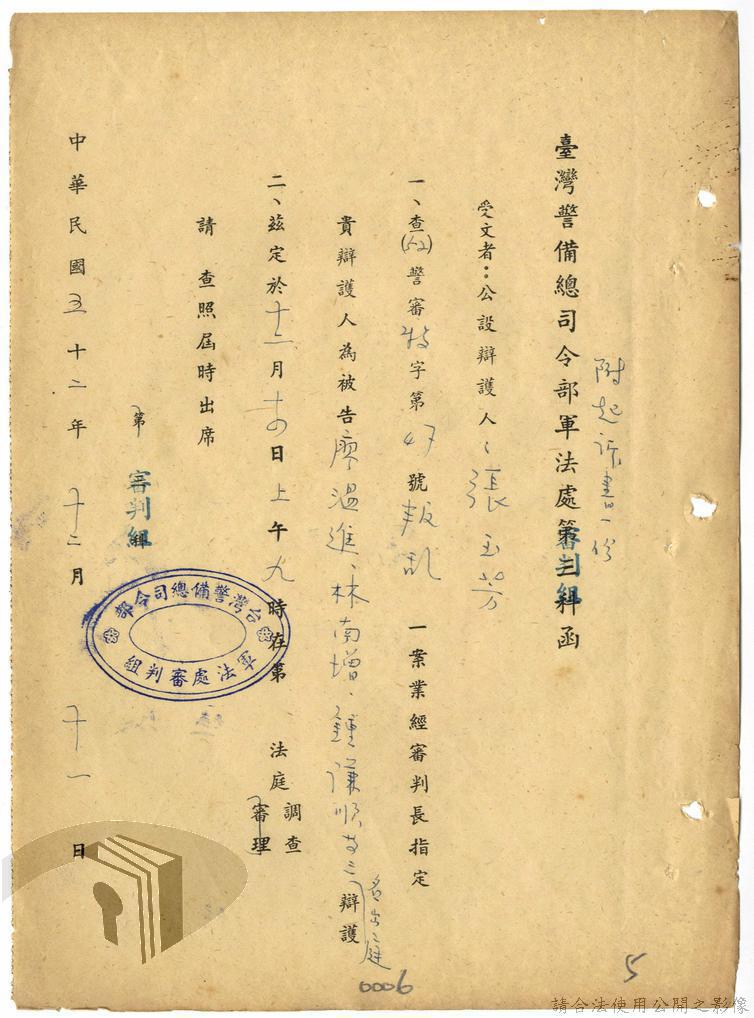 附起訴書一份
臺灣警備總司令部軍法處第三科函
審判組
受文者：公設辯護人、張玉芳
一、查(52)警審特字第47號叛乱一案業經審判長指定
貴辯護人為被告廖温進、林南增、鍾謙順等三名出庭辯護
二、茲定於十二月十日上午九時在第　法庭調查
審理
請查照屆時出席
第　科
審判組
台灣警備總司令部
軍法處審判組
中華民國五十二年十二月十一日
0006
5
請合法使用公開之影像